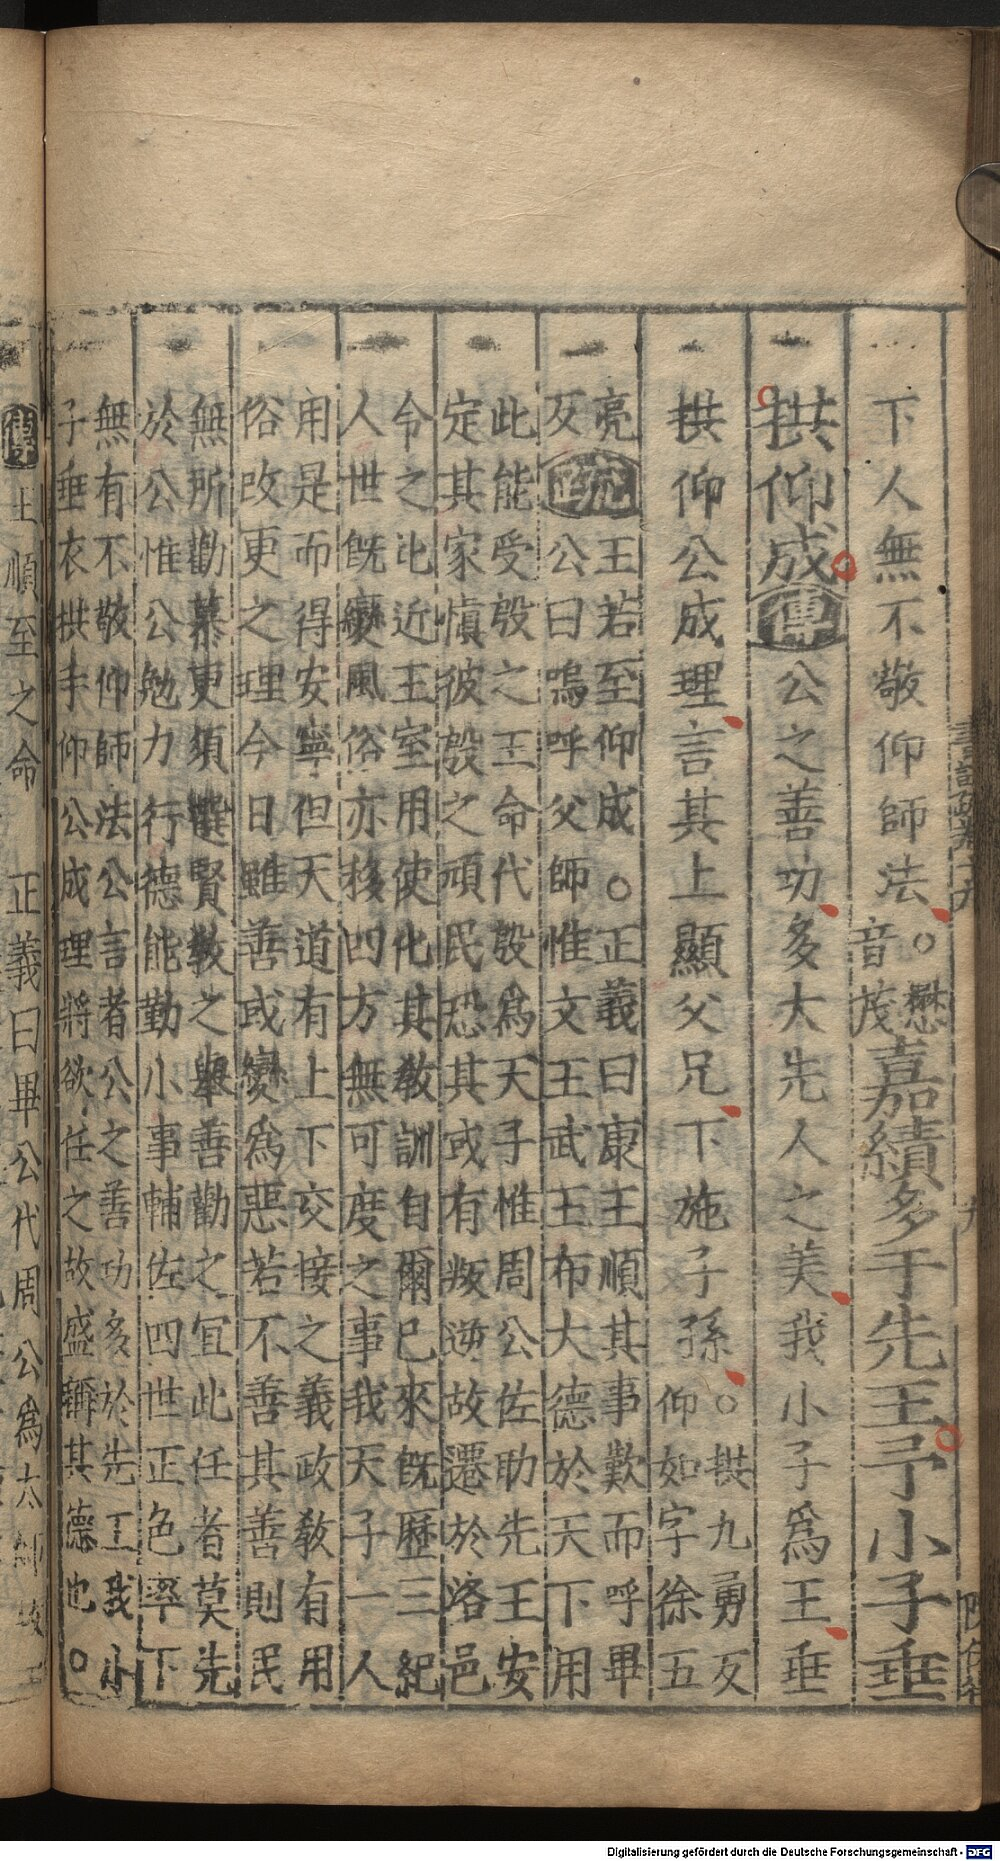 下人無不敬仰師法○懋音茂嘉績多于先王予小子垂
拱仰成傳公之善功多大先人之美我小子爲王垂
拱仰公成理言其上顯父兄下施子孫○拱九勇反仰如字徐五
亮反疏王若至仰成○正義曰康王順其事歎而呼畢
公曰嗚呼父師惟文王武王布大德於天下用
此能受殷之王命代殷爲天子惟周公佐助先王安
定其家愼彼殷之頑民恐其或有叛逆故遷於洛邑
令之比近王室用使化其敎訓自爾已來旣歷三紀
人世旣變風俗亦移四方無可度之事我天子一人
用是而得安寧但天道有上下交接之義政敎有用
俗改更之理今日雖善或變爲惡若不善其善則民
無所勸慕更須選賢敎之舉善勸之宜此任者莫先
於公惟公勉力行德能勤小事輔佐四世正色率下
無有不敬仰師法公言者公之善功多於先王我小
子垂衣拱手仰公成理將欲任之故盛稱其德也○
傳 順至之命 正義曰畢公代周公爲太師故王
Digitalisierung gefördert durch die Deutsche Forschungsgemeinschaft - DFG